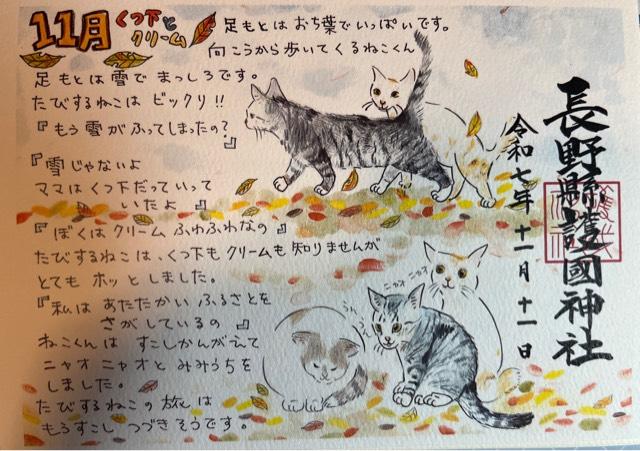 11月 くつ下とクリーム
足もとはおち葉でいっぱいです。
向こうから歩いてくるねこくん
足もとは雪でまっしろです。
たびするねこは ビックリ!!
『もう雪がふってしまったの?』
『雪じゃないよ
ママはくつ下だっていって
いたよ 』
『ぼくはクリームふわふわなの』
たびするねこは、くつ下もクリームも知りませんが
とても ホッとしました。
『私は あたたかい ふるさとを
さがしているの 』
ねこくんは すこしかんがえて
ニャオ ニャオと みみうちを
しました。
たびするねこの旅は
もうすこし つづきそうです。
ニャオ ニャオ
長野縣護國神社
令和七年 十一月 十一日